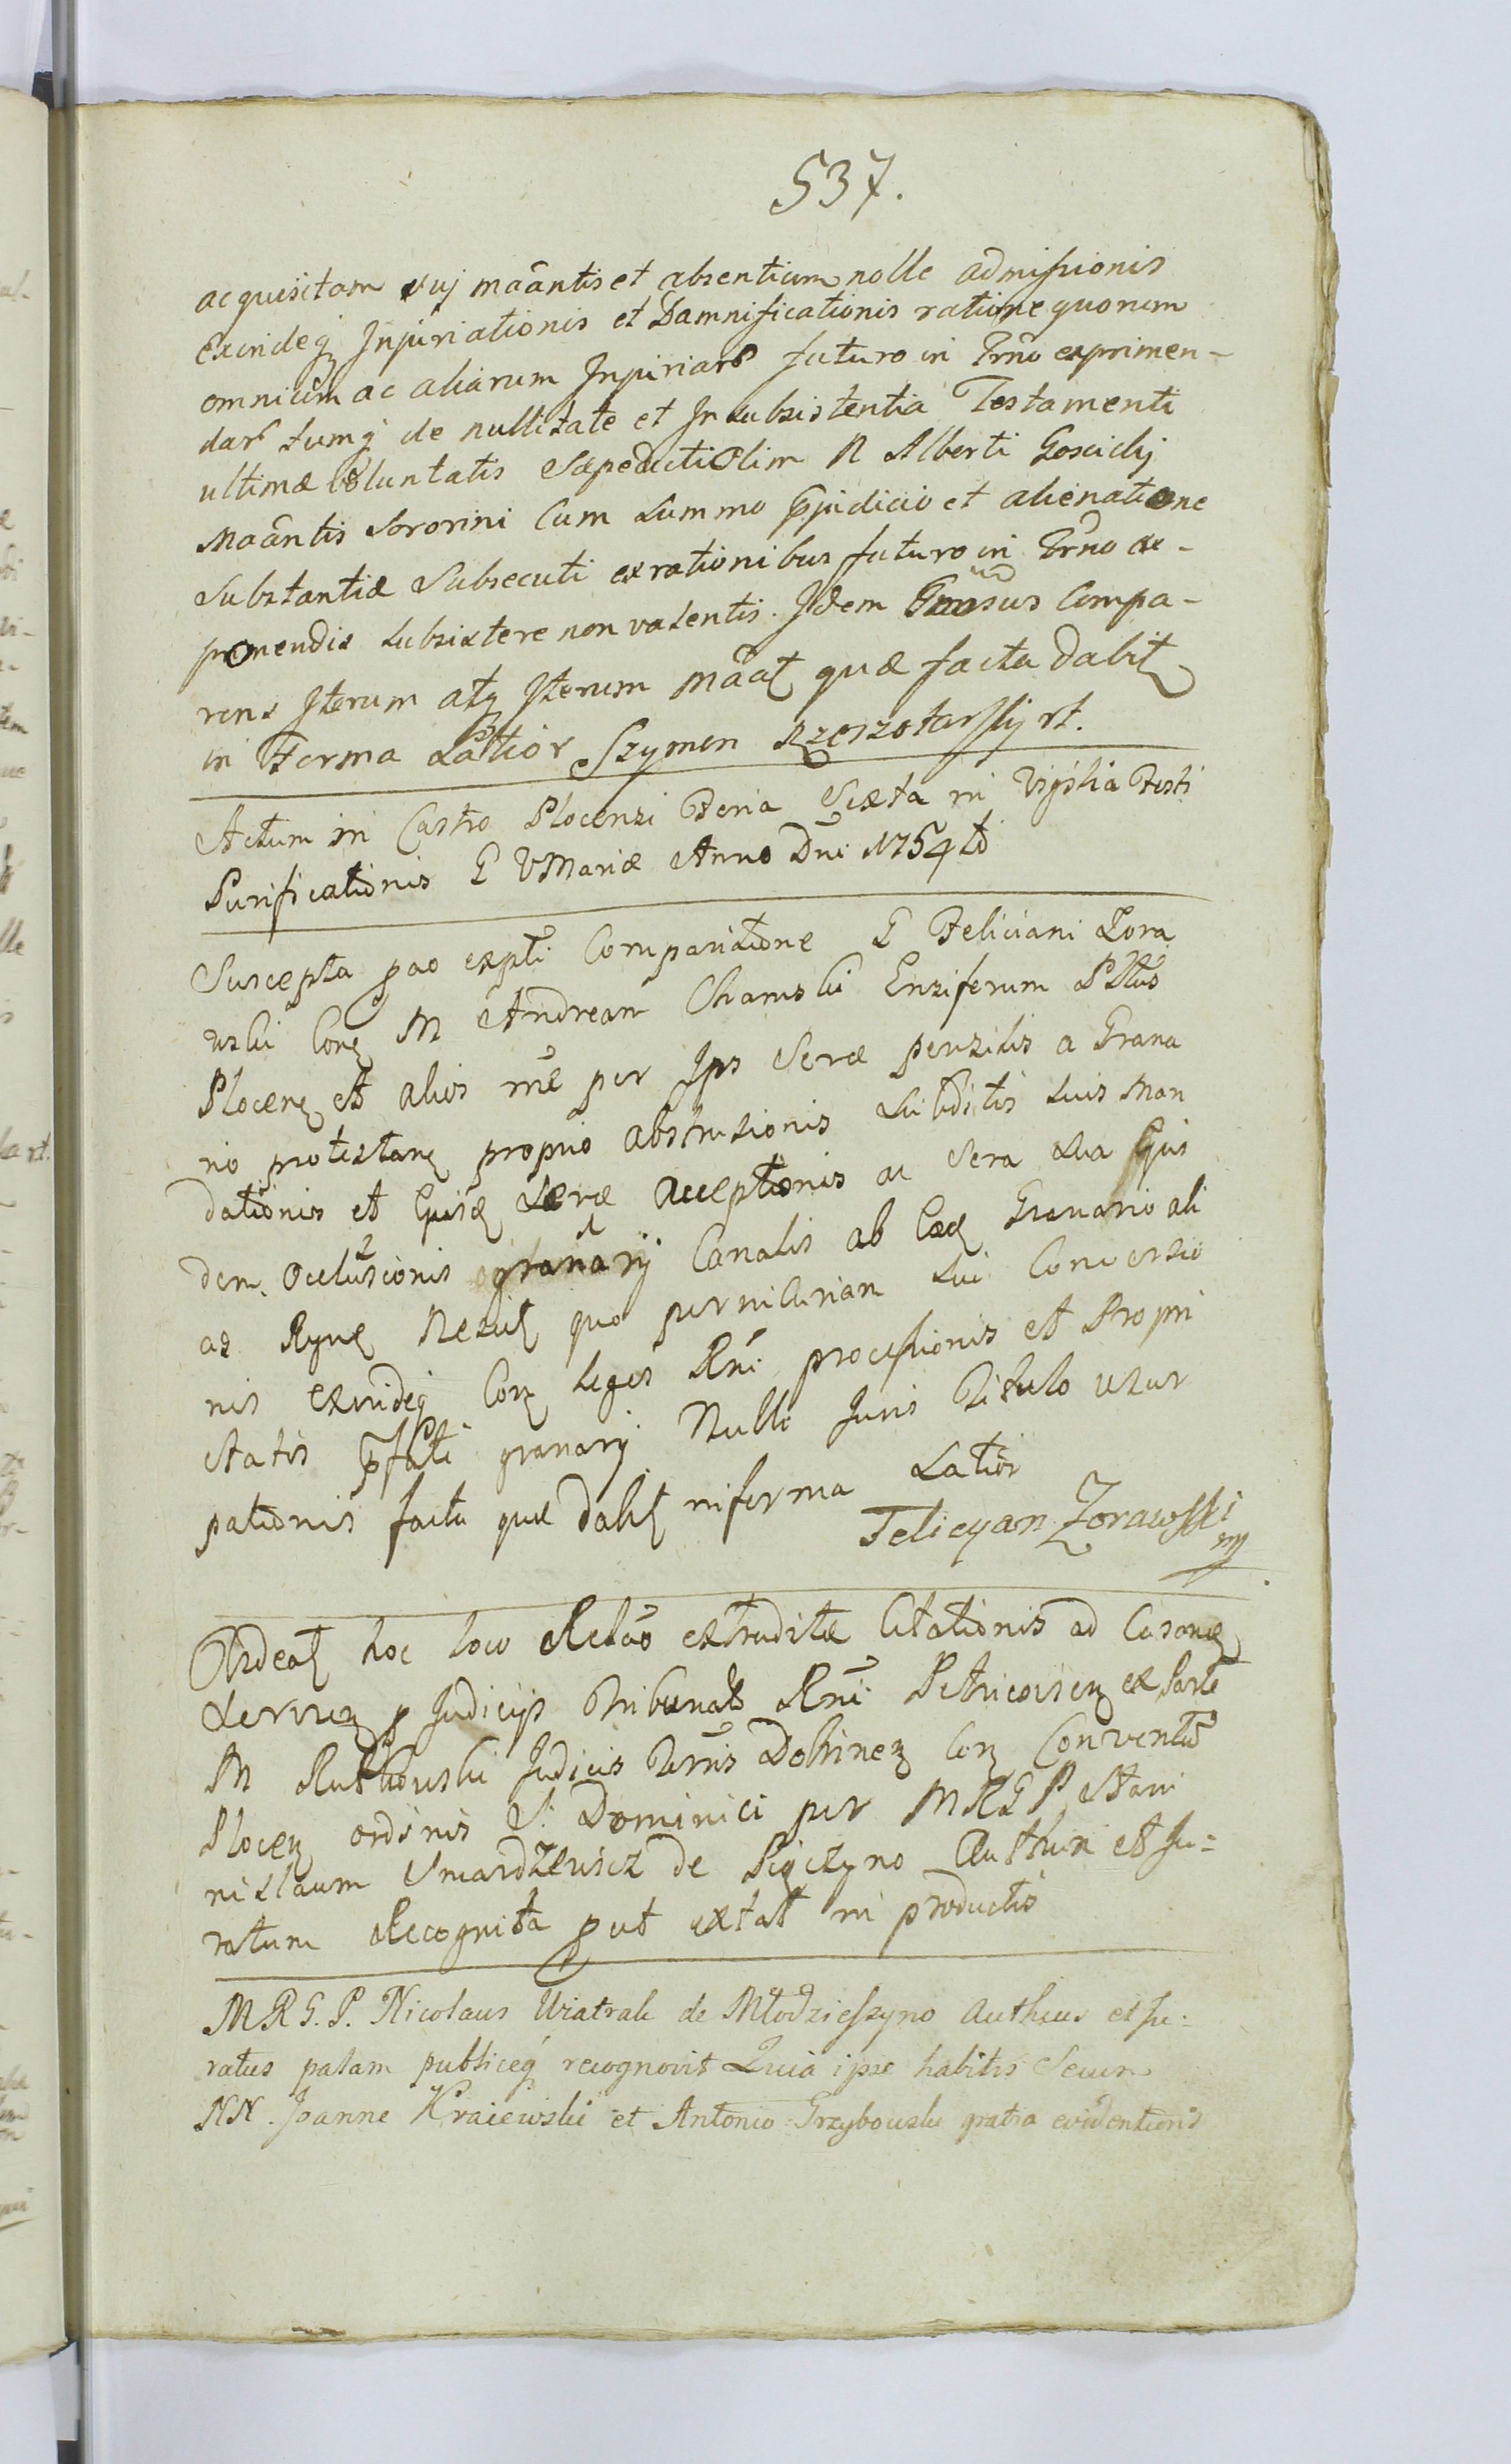 537.
acquisitam suj maântis et absentium nolle admissionis
exindeq Injuriationis et Damnificationis ratione quorum
omnium ac aliarum Injuriarũ futuro in Trno exprimen-
darũ tumq de nullitate et Insubsistentia Testamenti
ultimæ voluntatis sæpedicti Olim N Alberti Goscicij
Maântis Sororini Cum summo pjudicio et alienatione
substantiæ subsecuti ex rationibus futuro in Trno ex-
promendis subsistere non valentis. Idem Gnosus Compa-
rens Iterum atq Iterum mâat quæ facta dabit
in Forma Latior Szymon Rzeszotarski rt.
Actum in Castro Plocensi Feria Sexta in Vigilia Festi
Purificationis B V Mariæ Anno Dni 1754to
Suscepta pao expti Comparitione G Feliciani Zora
wski Con M Andream Chamski Ensiferum Pttus
Plocen et alios rñe per Ips Seræ pensilis a Grana
rio protestan proprio abstrusionis subditis suis Man
dationis et Ejusd seræ acceptionis ac sera sua Ejus
dem Occlusionis granarij Canalis ab Ead Granario ali
as Rynę quo perniciem sui Conversio
nis exindeq Con leges Rni processionis et Propri
etatis pfati granarij Nullo Juris Titulo usur
pationis facta quæ dabit in forma Latiori
Felicyan Zorawski
mp
Ardeat hoc loco Relaõ extraditæ Citationis ad Causam
p Judicijs Tribunal Rni Petricovien ex Parte
M Rutkowski Judicis Terris Dobrinen Con Conventũ
Plocen ordinis S. Dominici per MRGP Stani
nislaum Smardzewicz de Authen et Ju=
ratum Recognita put extat in productis
MRG.P. Nicolaus Wiatrak de Młodzieszyno Authcus et Ju:
ratus palam publiceq recognovit Quia ipse habitis Secum
NN. Joanne Kraiewski et Antonio Grzybowski gratia evidentioris